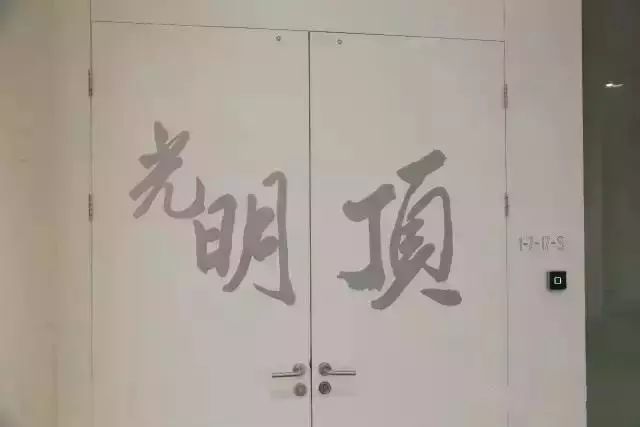 光明頂
1-7-17-S